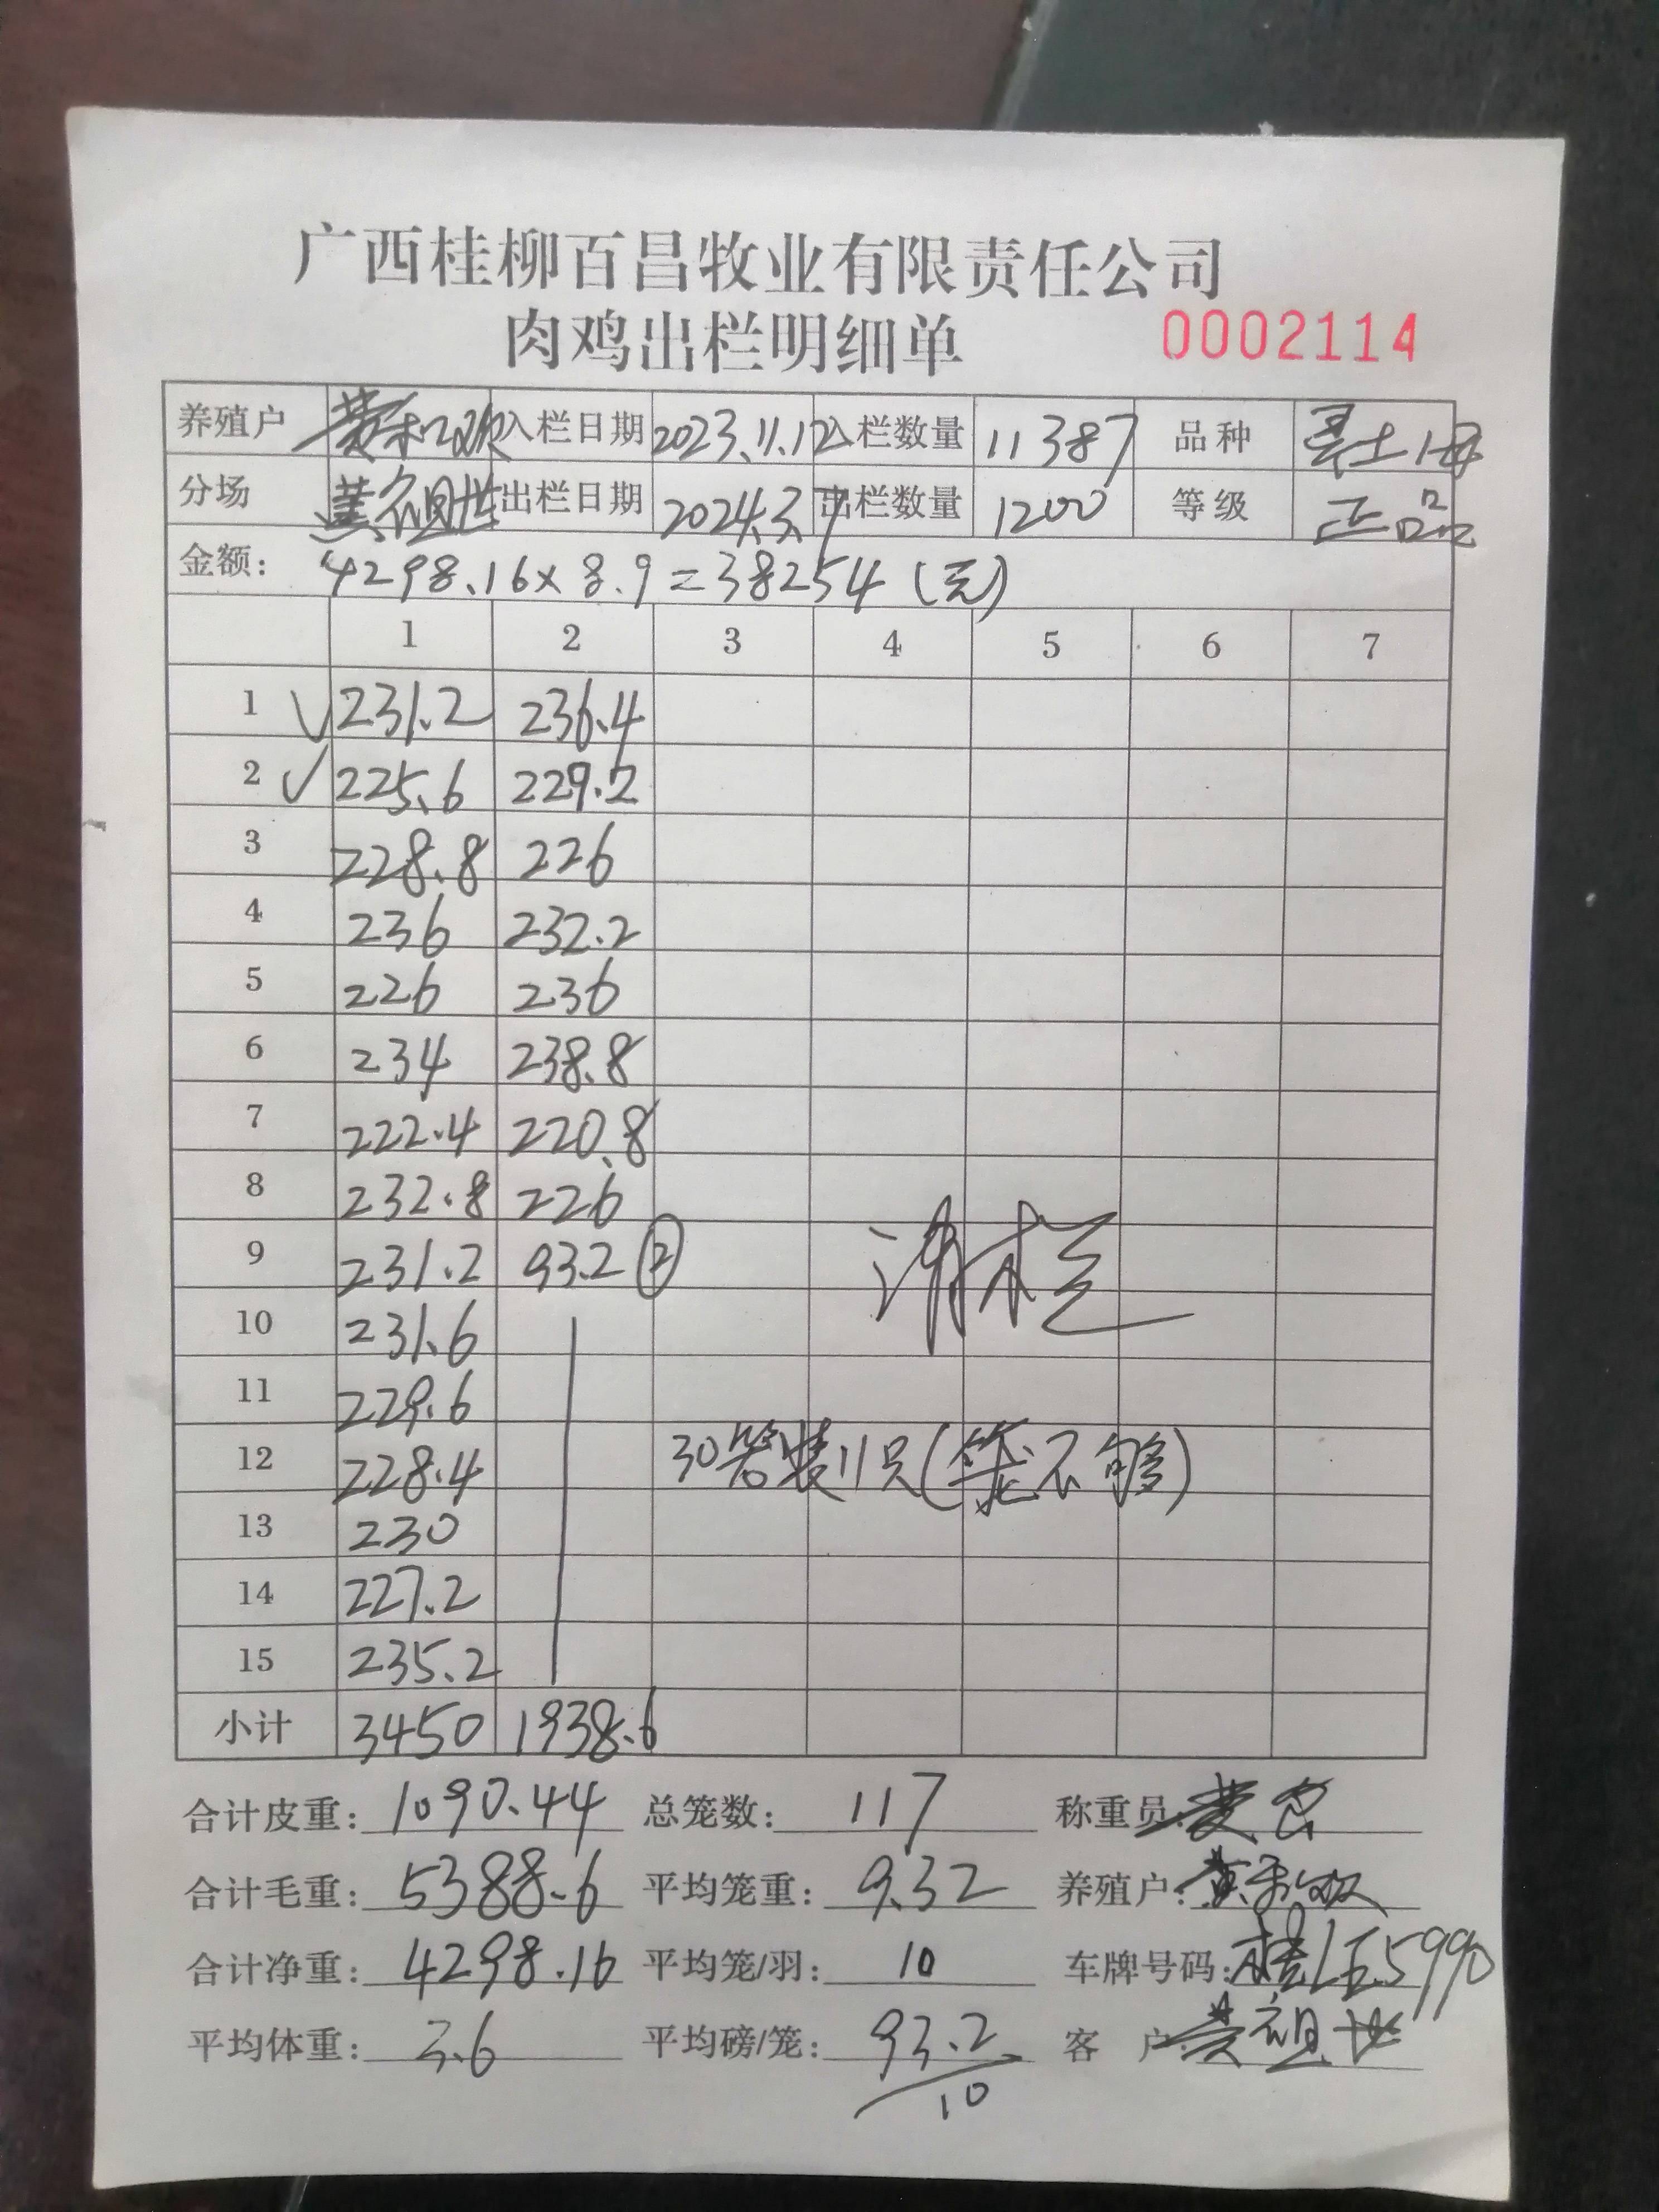 广西桂柳百昌牧业有限责任公司
肉鸡出栏明细单 0002114
养殖户 入栏日期 2023.11.12 入栏数量 11387 品种
分场 黄祖世 出栏日期 2024.3.7 出栏数量 1200 等级 正品
金额: 4298.16×8.9=38254(元)
1 2 3 4 5 6 7
1 √ 231.2 236.4
2 √ 225.6 229.2
3 228.8 226
4 236 232.2
5 226 236
6 234 238.8
7 222.4 220.8
8 232.8 226
9 231.2 93.2 ②
清栏
10 231.6
11 229.6
12 228.4 30笼装11只(笼不够)
13 230
14 227.2
15 235.2
小计 3450 1938.6
合计皮重: 1090.44 总笼数: 117 称重员:
合计毛重: 5388.6 平均笼重: 9.32 养殖户:
合计净重: 4298.16 平均笼/羽: 10 车牌号码: 桂LE5990
平均体重: 3.6 平均磅/笼: 93.2/10 客户 黄祖世